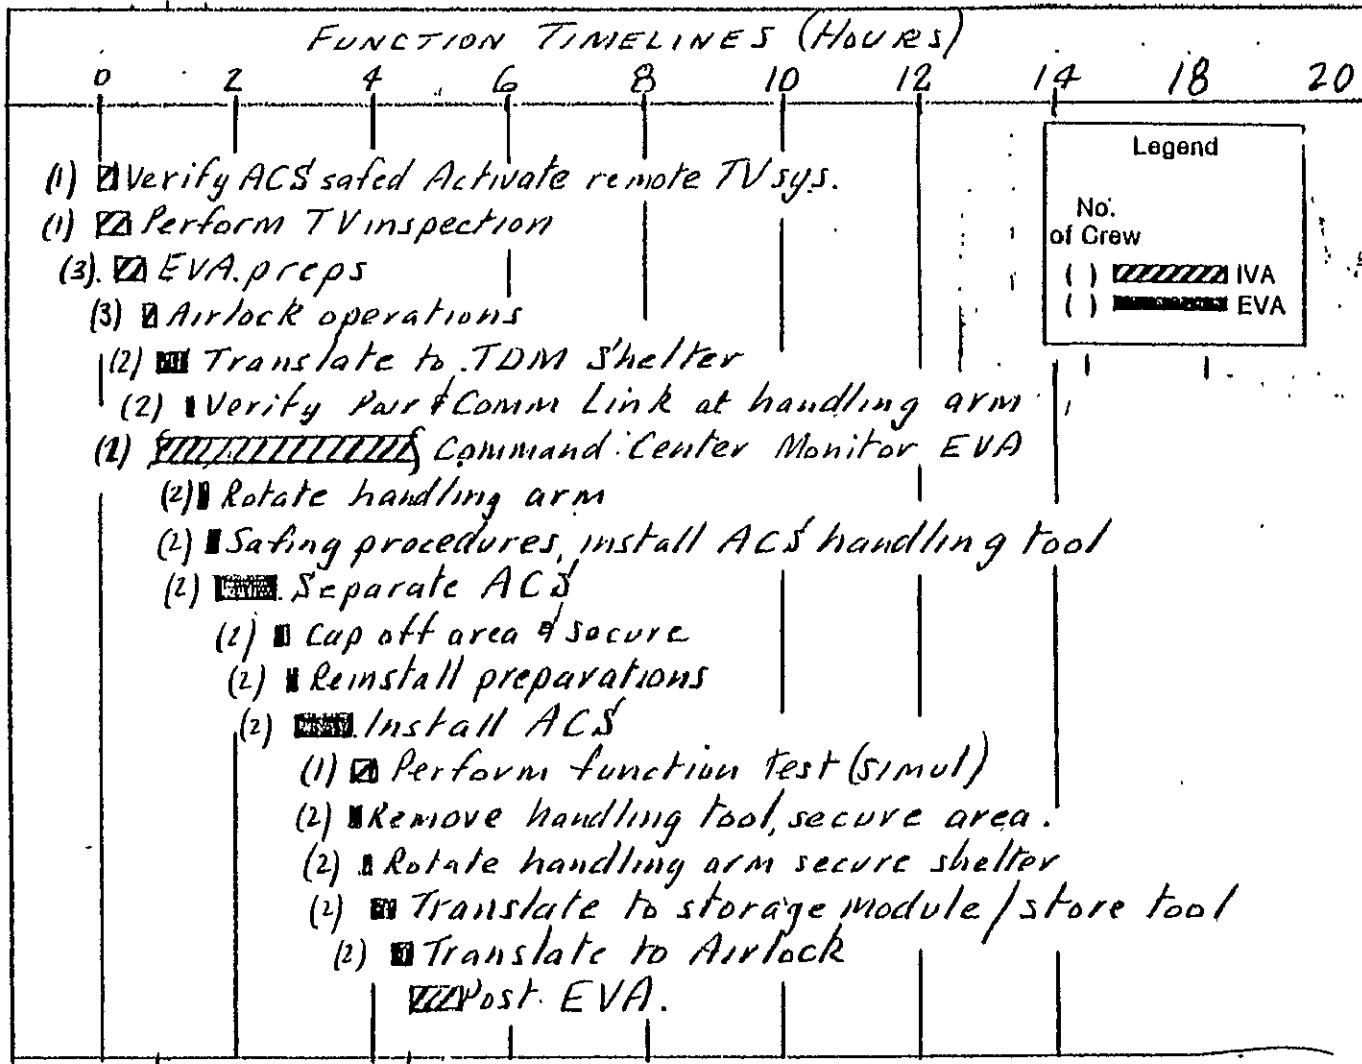 FUNCTION TIMELINES (HOURS)
0 2 4 6 8 10 12 14 18 20
Legend
No.
of Crew
( ) IVA
( ) EVA
(1) Verify ACS safed Activate remote TV sys.
(1) Perform TV inspection
(3). EVA. preps
(3) Airlock operations
(2) Translate to TDM Shelter
(2) Verify Pwr & Comm Link at handling arm
Command Center Monitor EVA
(2) Rotate handling arm
(2) Safing procedures, install ACS handling tool
(2) Separate ACS
(2) Cap off area & secure
(2) Reinstall preparations
(2) Install ACS
(1) Perform function test (simul)
(2) Remove handling tool, secure area.
(2) Rotate handling arm secure shelter
(2) Translate to storage module / store tool
(2) Translate to Airlock
Post EVA.